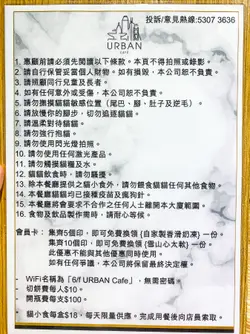 投訴/意見熱線:5307 3636
URBAN
CAFE
1. 惠顧前請必須先閱讀以下條款。本頁不得拍照或錄影。
2. 請自行保管妥當個人財物。如有損毀，本公司恕不負責。
3. 請照顧同行兒童及長者。
4. 如有任何意外或受傷，本公司恕不負責。
5. 請勿撫摸貓貓敏感位置（尾巴、腳、肚子及逆毛）。
6. 請放慢你的腳步，切勿追逐貓貓。
7. 請溫柔對待貓貓。
8. 請勿強行抱貓。
9. 請勿使用閃光燈拍照。
10. 請勿使用任何激光產品。
11. 請勿觸摸貓糧及水。
12. 貓貓飲食時，請勿騷擾。
13. 除本餐廳提供之貓小食外，請勿餵食貓貓任何其他食物。
14. 本餐廳貓貓均已接種疫苗及瘋狗針。
15. 本餐廳將會要求不合作之任何人士離開本大廈範圍。
16. 食物及飲品製作需時，請耐心等候。
會員卡： 集齊5個印，即可免費換領 (自家製香滑奶凍) 一份。
集齊10個印，即可免費換領 (雪山心太軟) 一份。
此優惠不能與其他優惠同時使用。
如有任何爭議，本公司將保留最終決定權。
WiFi名稱為「6/f URBAN Cafe」，無需密碼。
切餅費每人$10。
開瓶費每支$100。
貓小食每盒$18。每天限量供應。完成用餐後向店員索取。